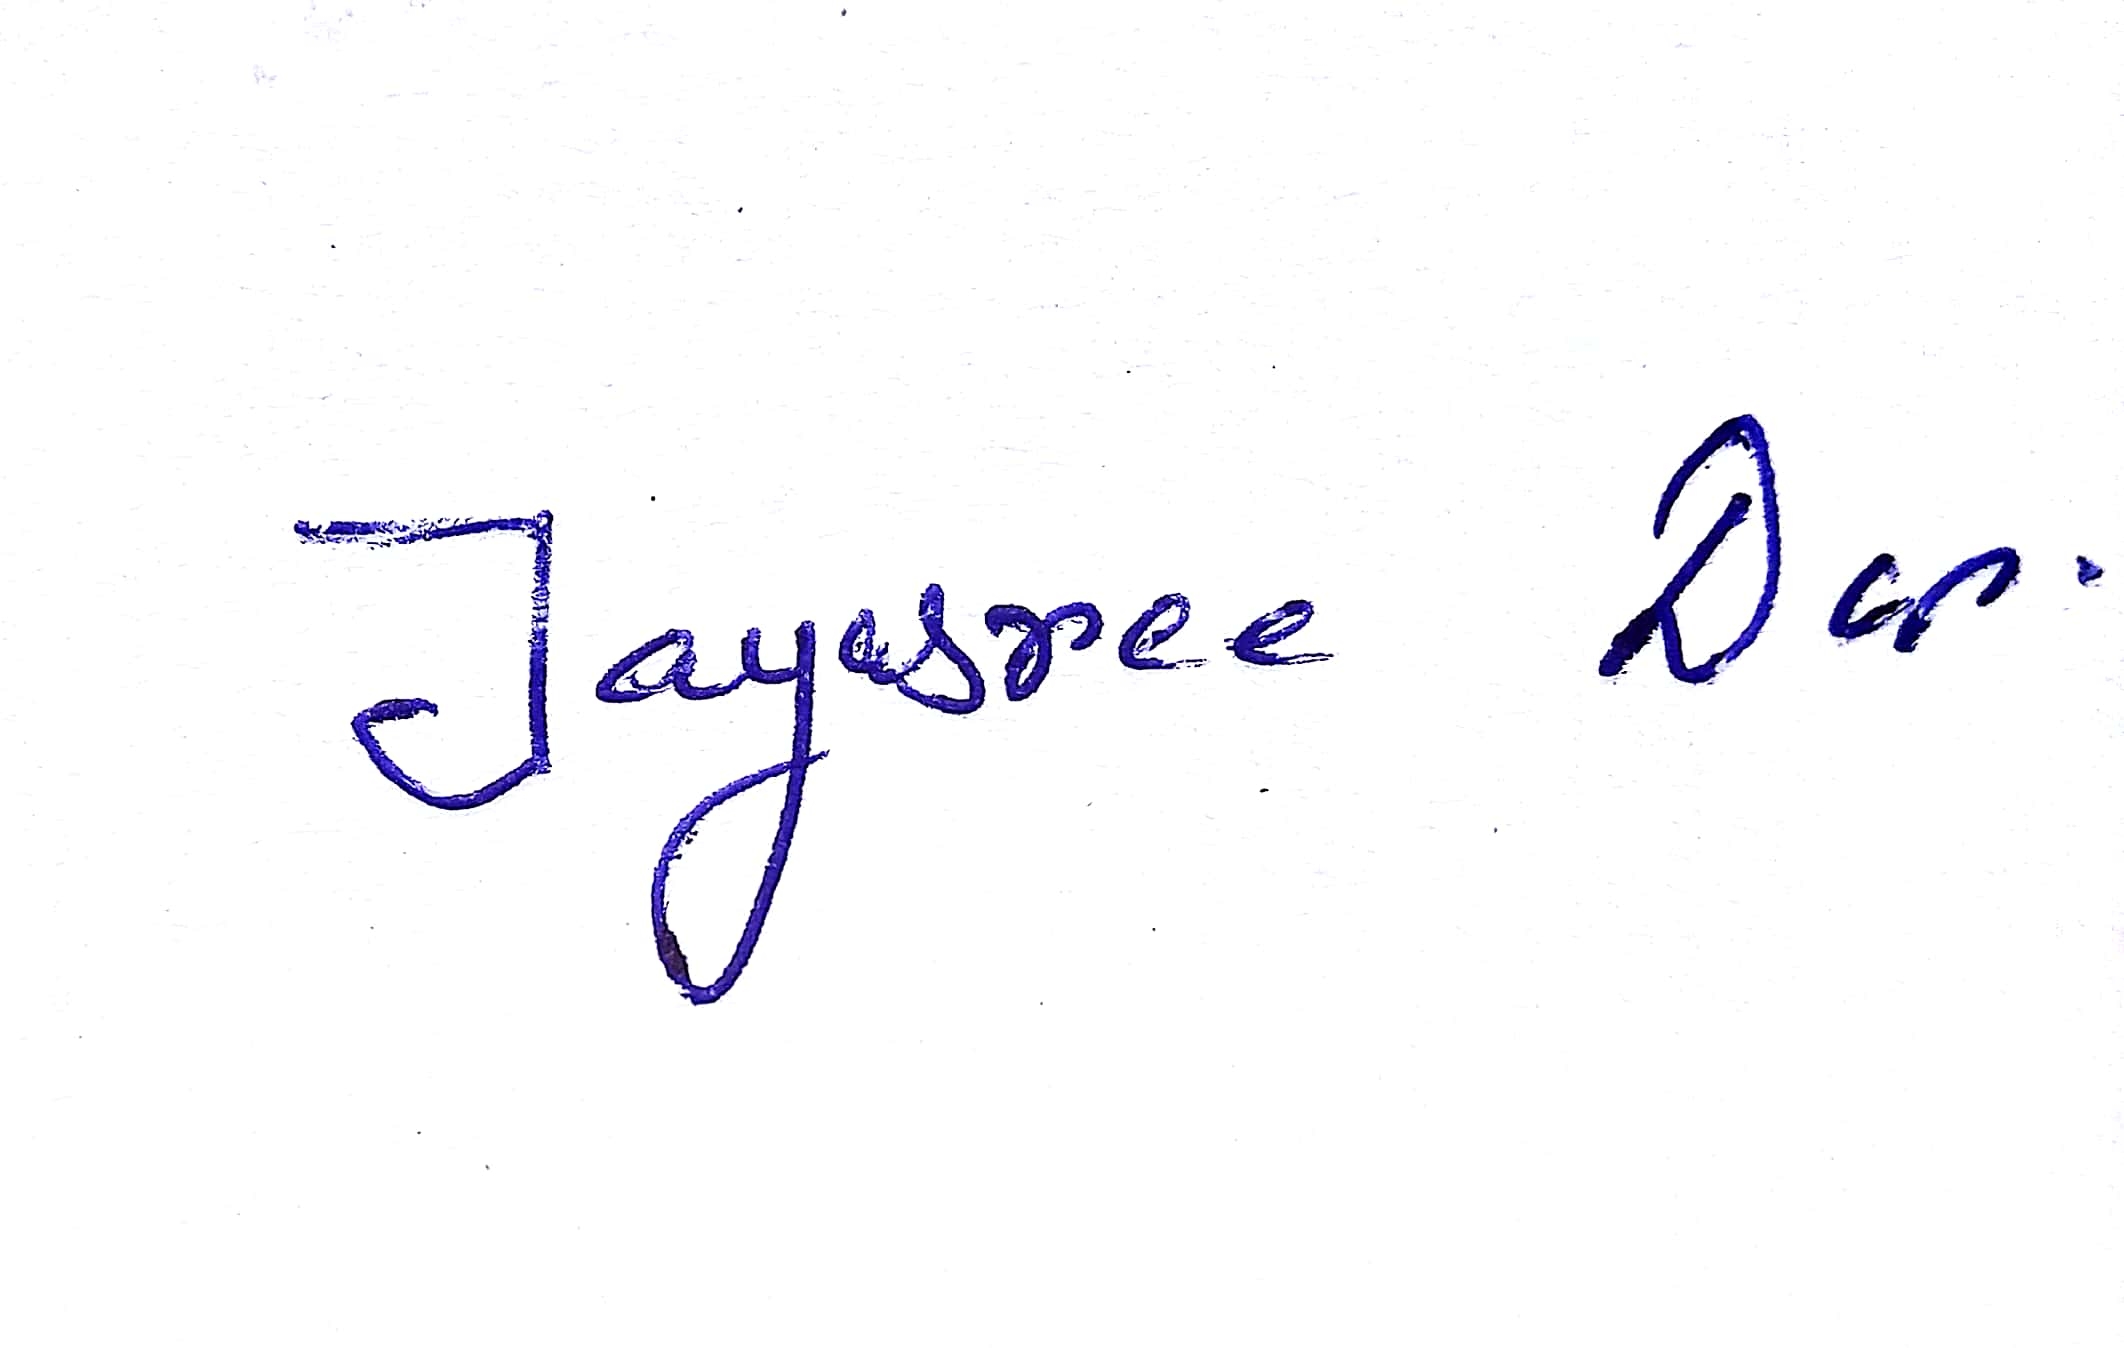 Jayasree Das.